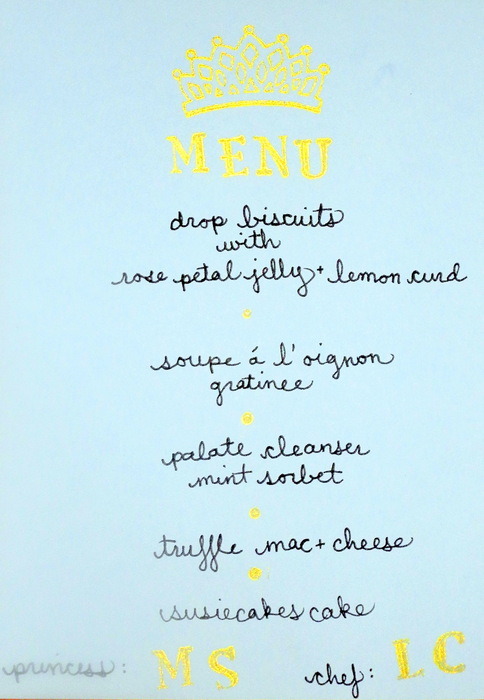 MENU
drop biscuits
with
rose petal jelly + lemon curd
soupe á l'oignon
gratinee
palate cleanser
mint sorbet
truffle mac + cheese
susiecakes cake
princess: MS chef: LC